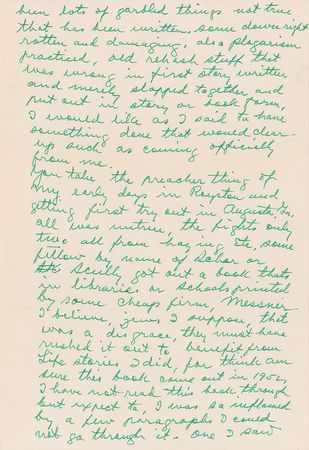 been lots of garbled things not true
that has been written. Some down right
rotten and damaging, also plagarism
practiced, old rehash stuff that
was wrong in first story written
and merely slapped together and
put out in story or book form,
I would like as I said to have
something done that would clear
up such as coming officially
from me.
You take the preacher thing of
my early days in Royston and
getting first try out in Augusta, Ga.
all was untrue, the fights only
two all from having to, some
fellow by name of Schor or
Scully got out a book thats
in libraries or schools printed
by some cheap firm, Messner
I believe, jews I suppose, that
was a disgrace, they must have
rushed it out to benefit from
Life stories I did, for think am
sure this book come out in 1952,
I have not read this book through
but expect to, I was so inflamed
by a few paragraphs I could
not go through it. One I saw